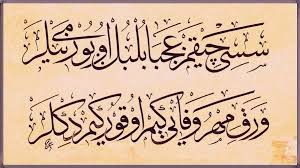 سسی چیقمز عجبا بلبل اویور می نیلر
ورق مهر وفایی کیم اوقور کیم دکلر